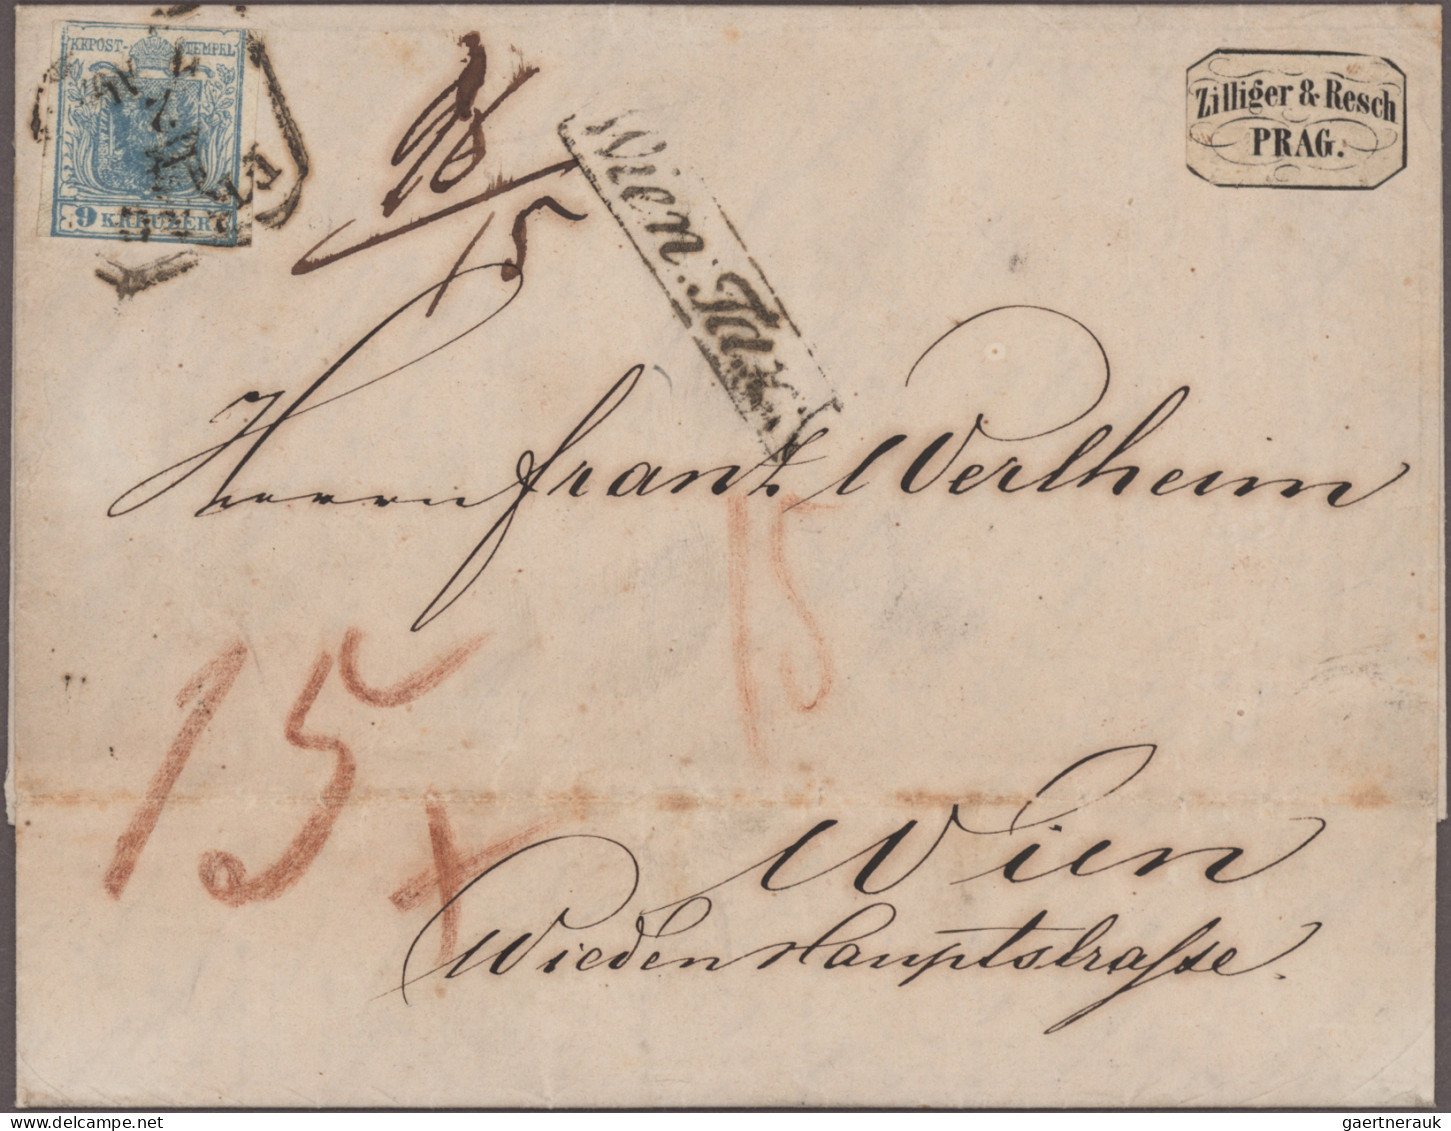 KKPOST-STEMPEL
9 KREUZER
Zilliger & Resch
PRAG.
15
Wien: Tax
Herrn Frantz Wertheim
15
15
Wien
Wieden Hauptstraße.
gaertnerauk